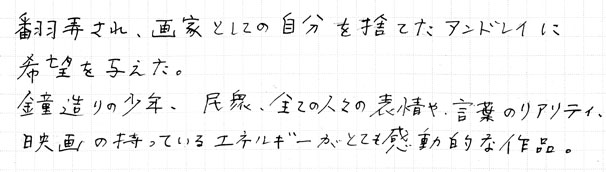 翻弄され、画家としての自分を捨てたアンドレイに
希望を与えた。
鐘造りの少年、民衆、全ての人々の表情や、言葉のリアリティ、
映画の持っているエネルギーがとても感動的な作品。